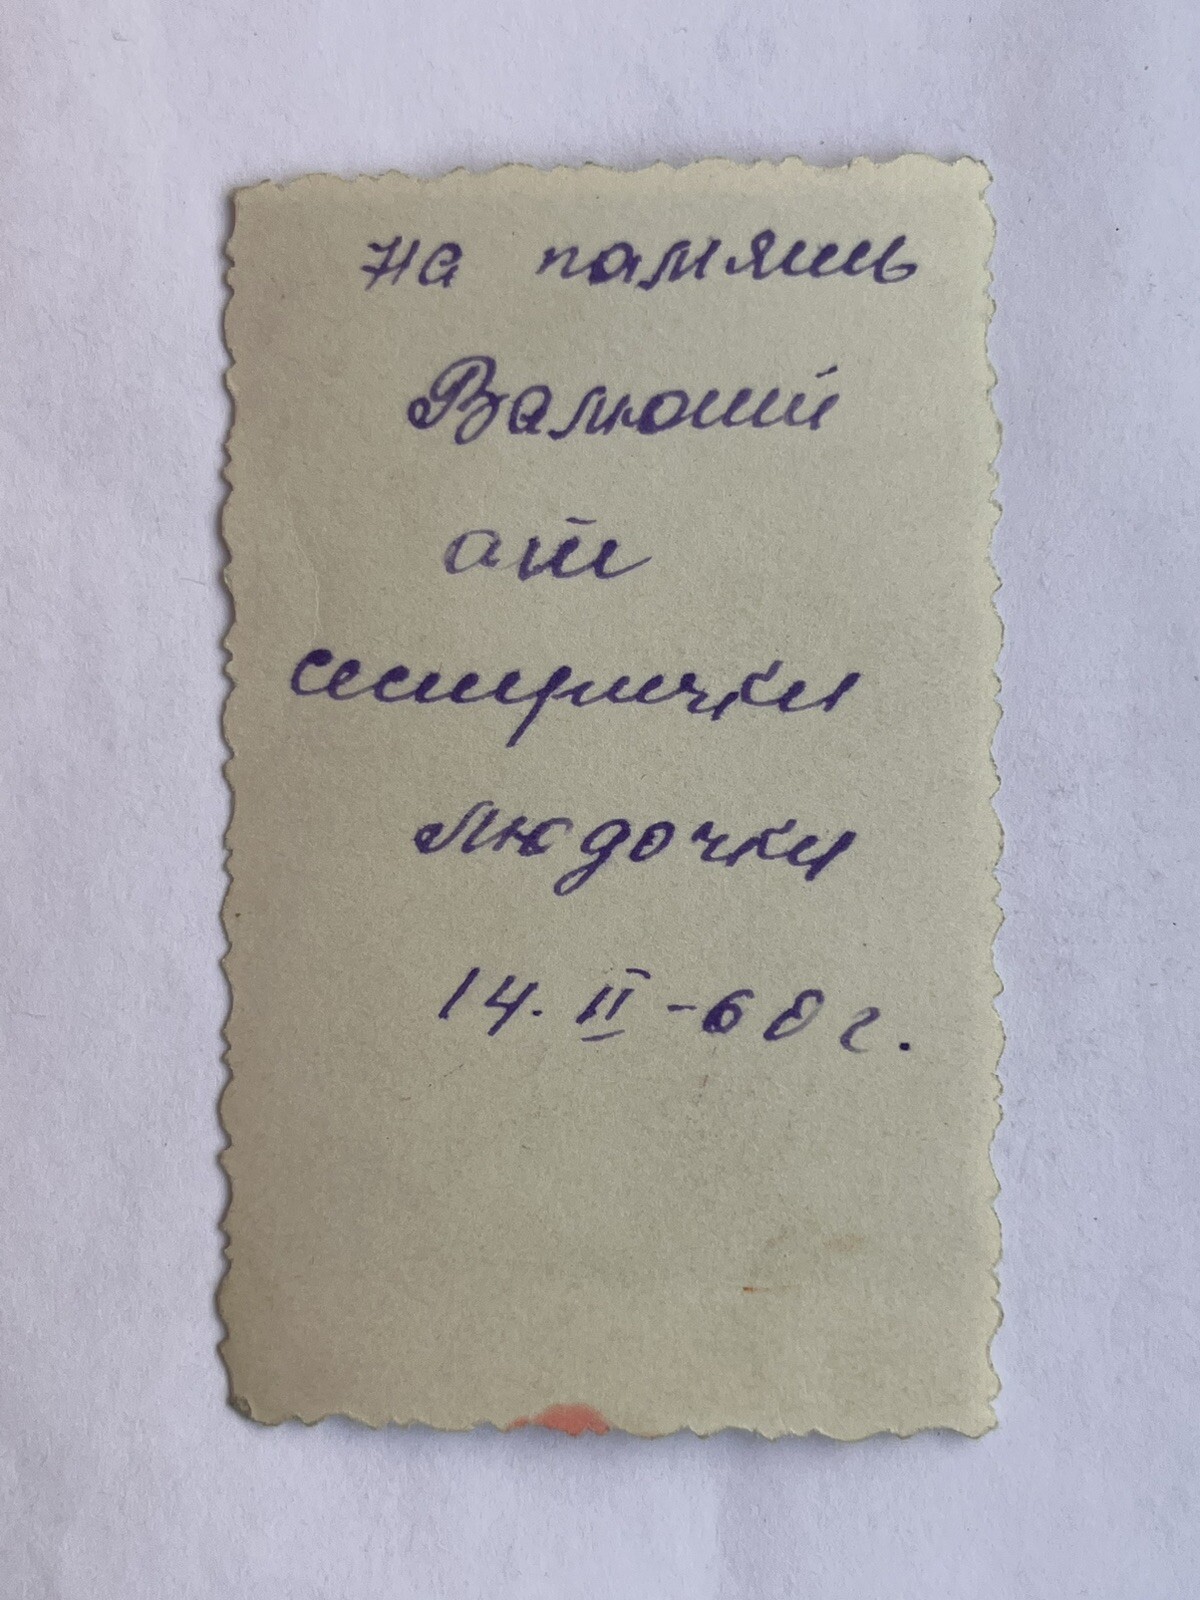 На память
Валюший
от
сестрички
Людочки
14. II - 60 г.